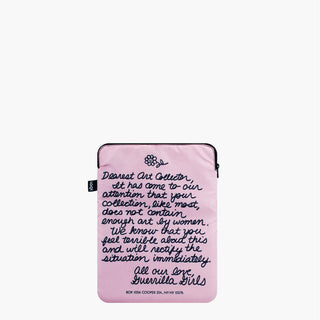 Dearest Art Collector,
It has come to our
attention that your
collection, like most,
does not contain
enough art by women.
We know that you
feel terrible about this
and will rectify the
situation immediately.
All our love,
Guerrilla Girls
BOX 1056 COOPER STA. NY, NY 10276